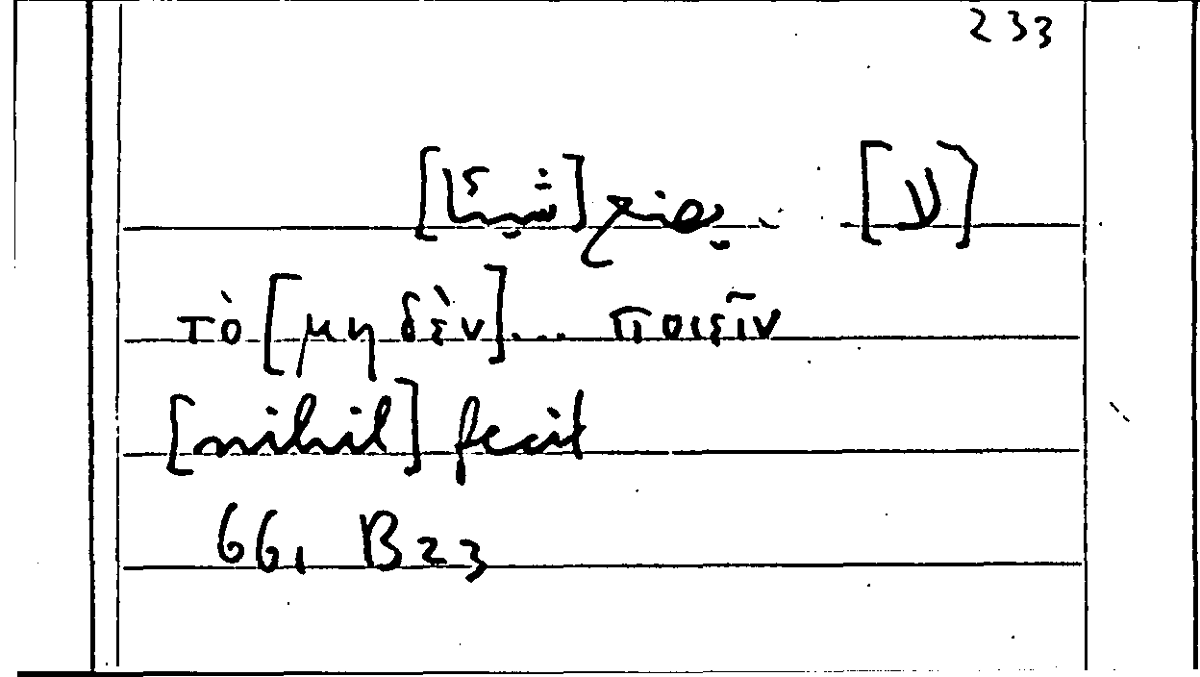 233
[لا] .. يصنع [شيئا]
τὸ [μηδὲν]... ποιεῖν
[nihil] fecit
661 B23